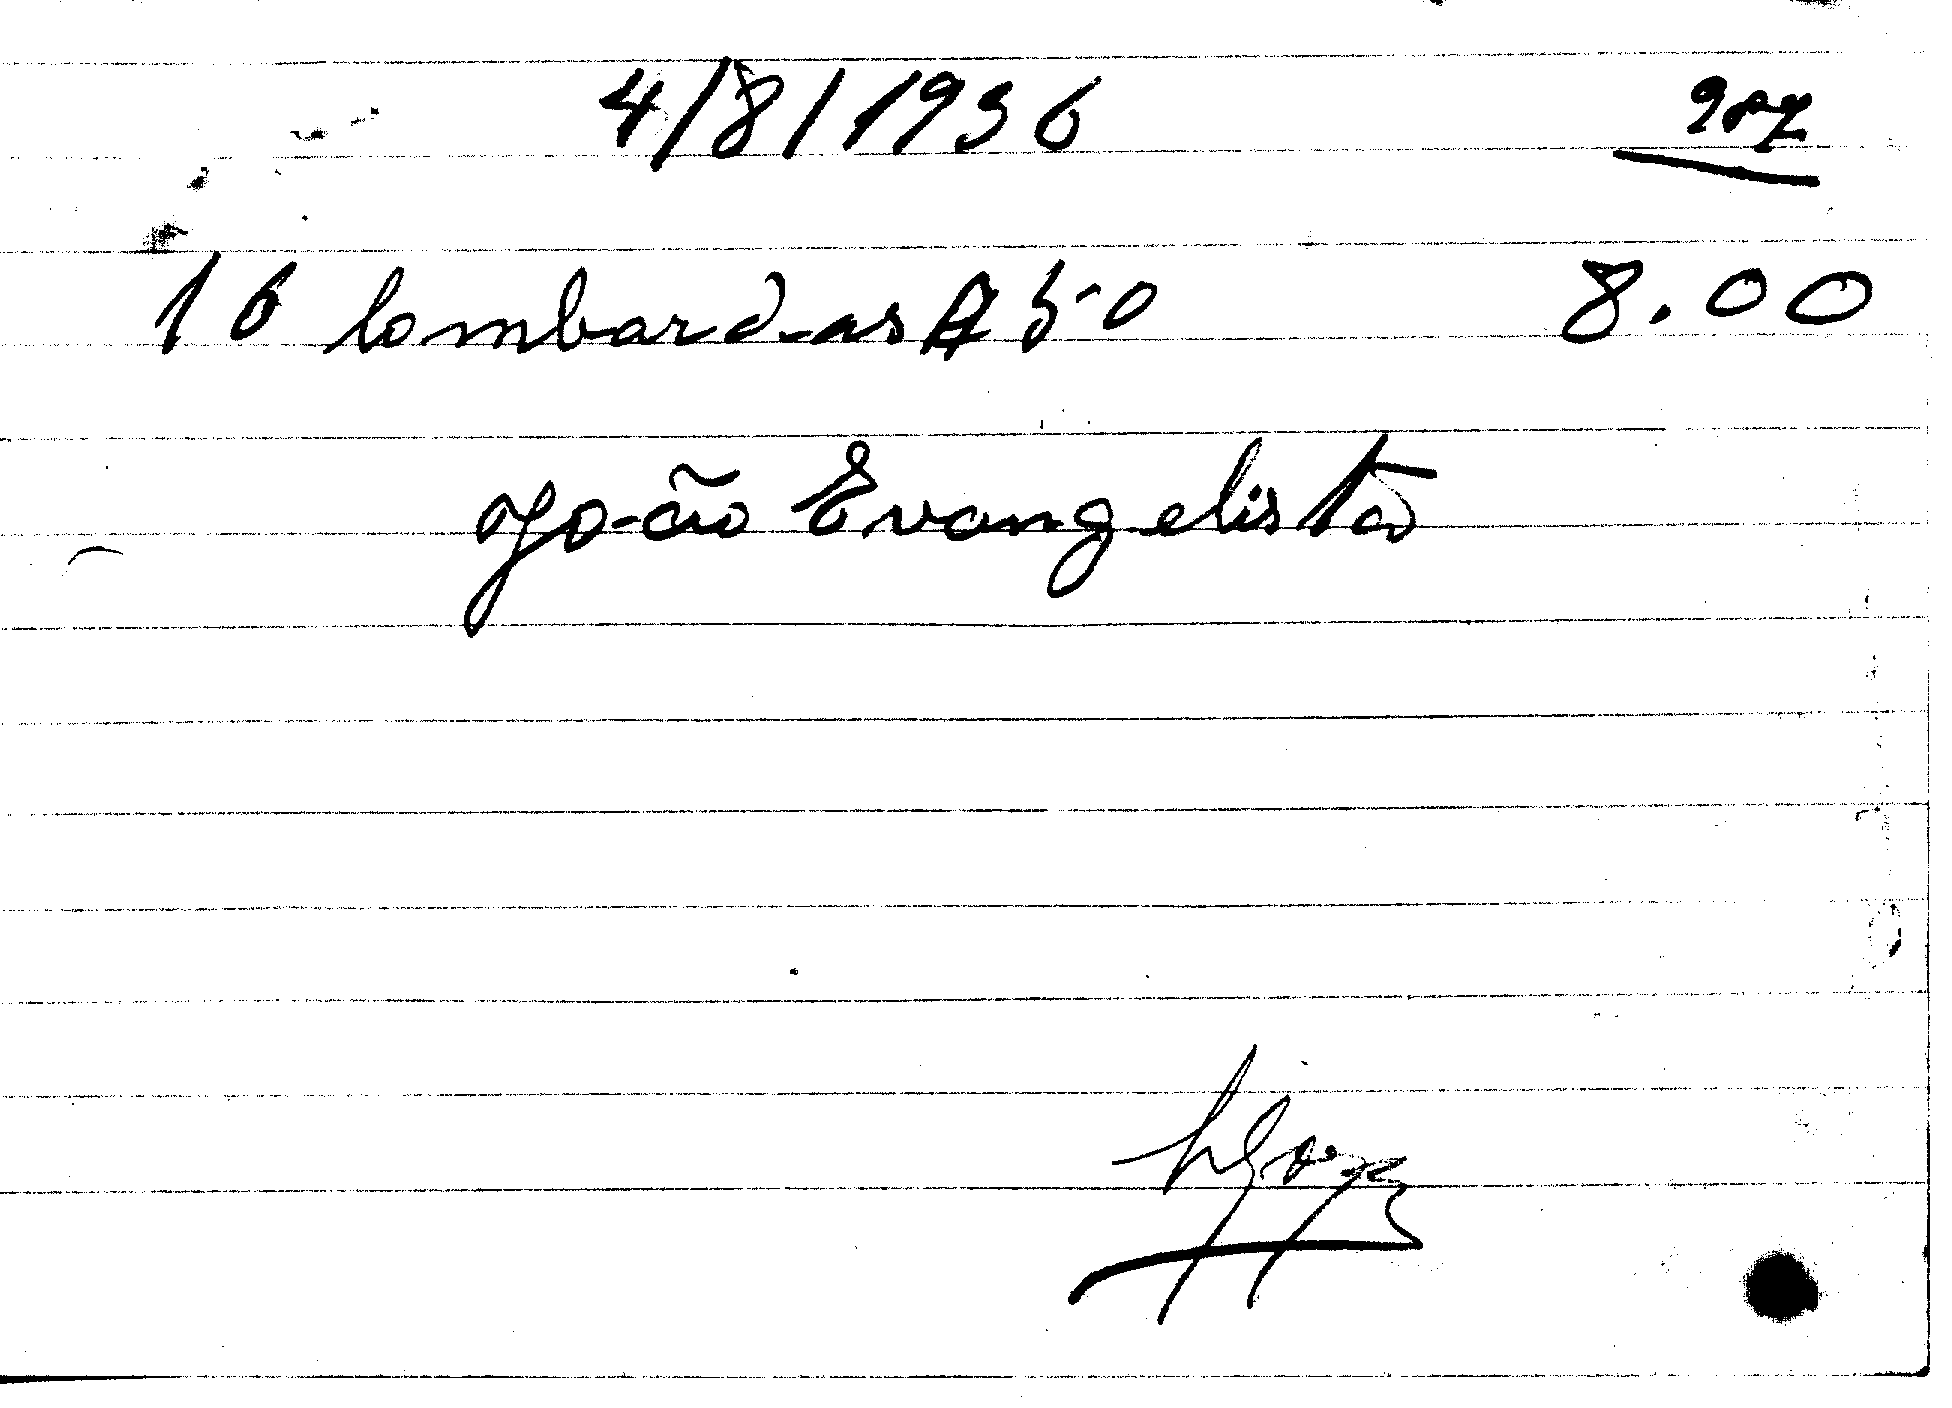 4/8/1936
16 lombardas A 50 8.00
João Evangelista